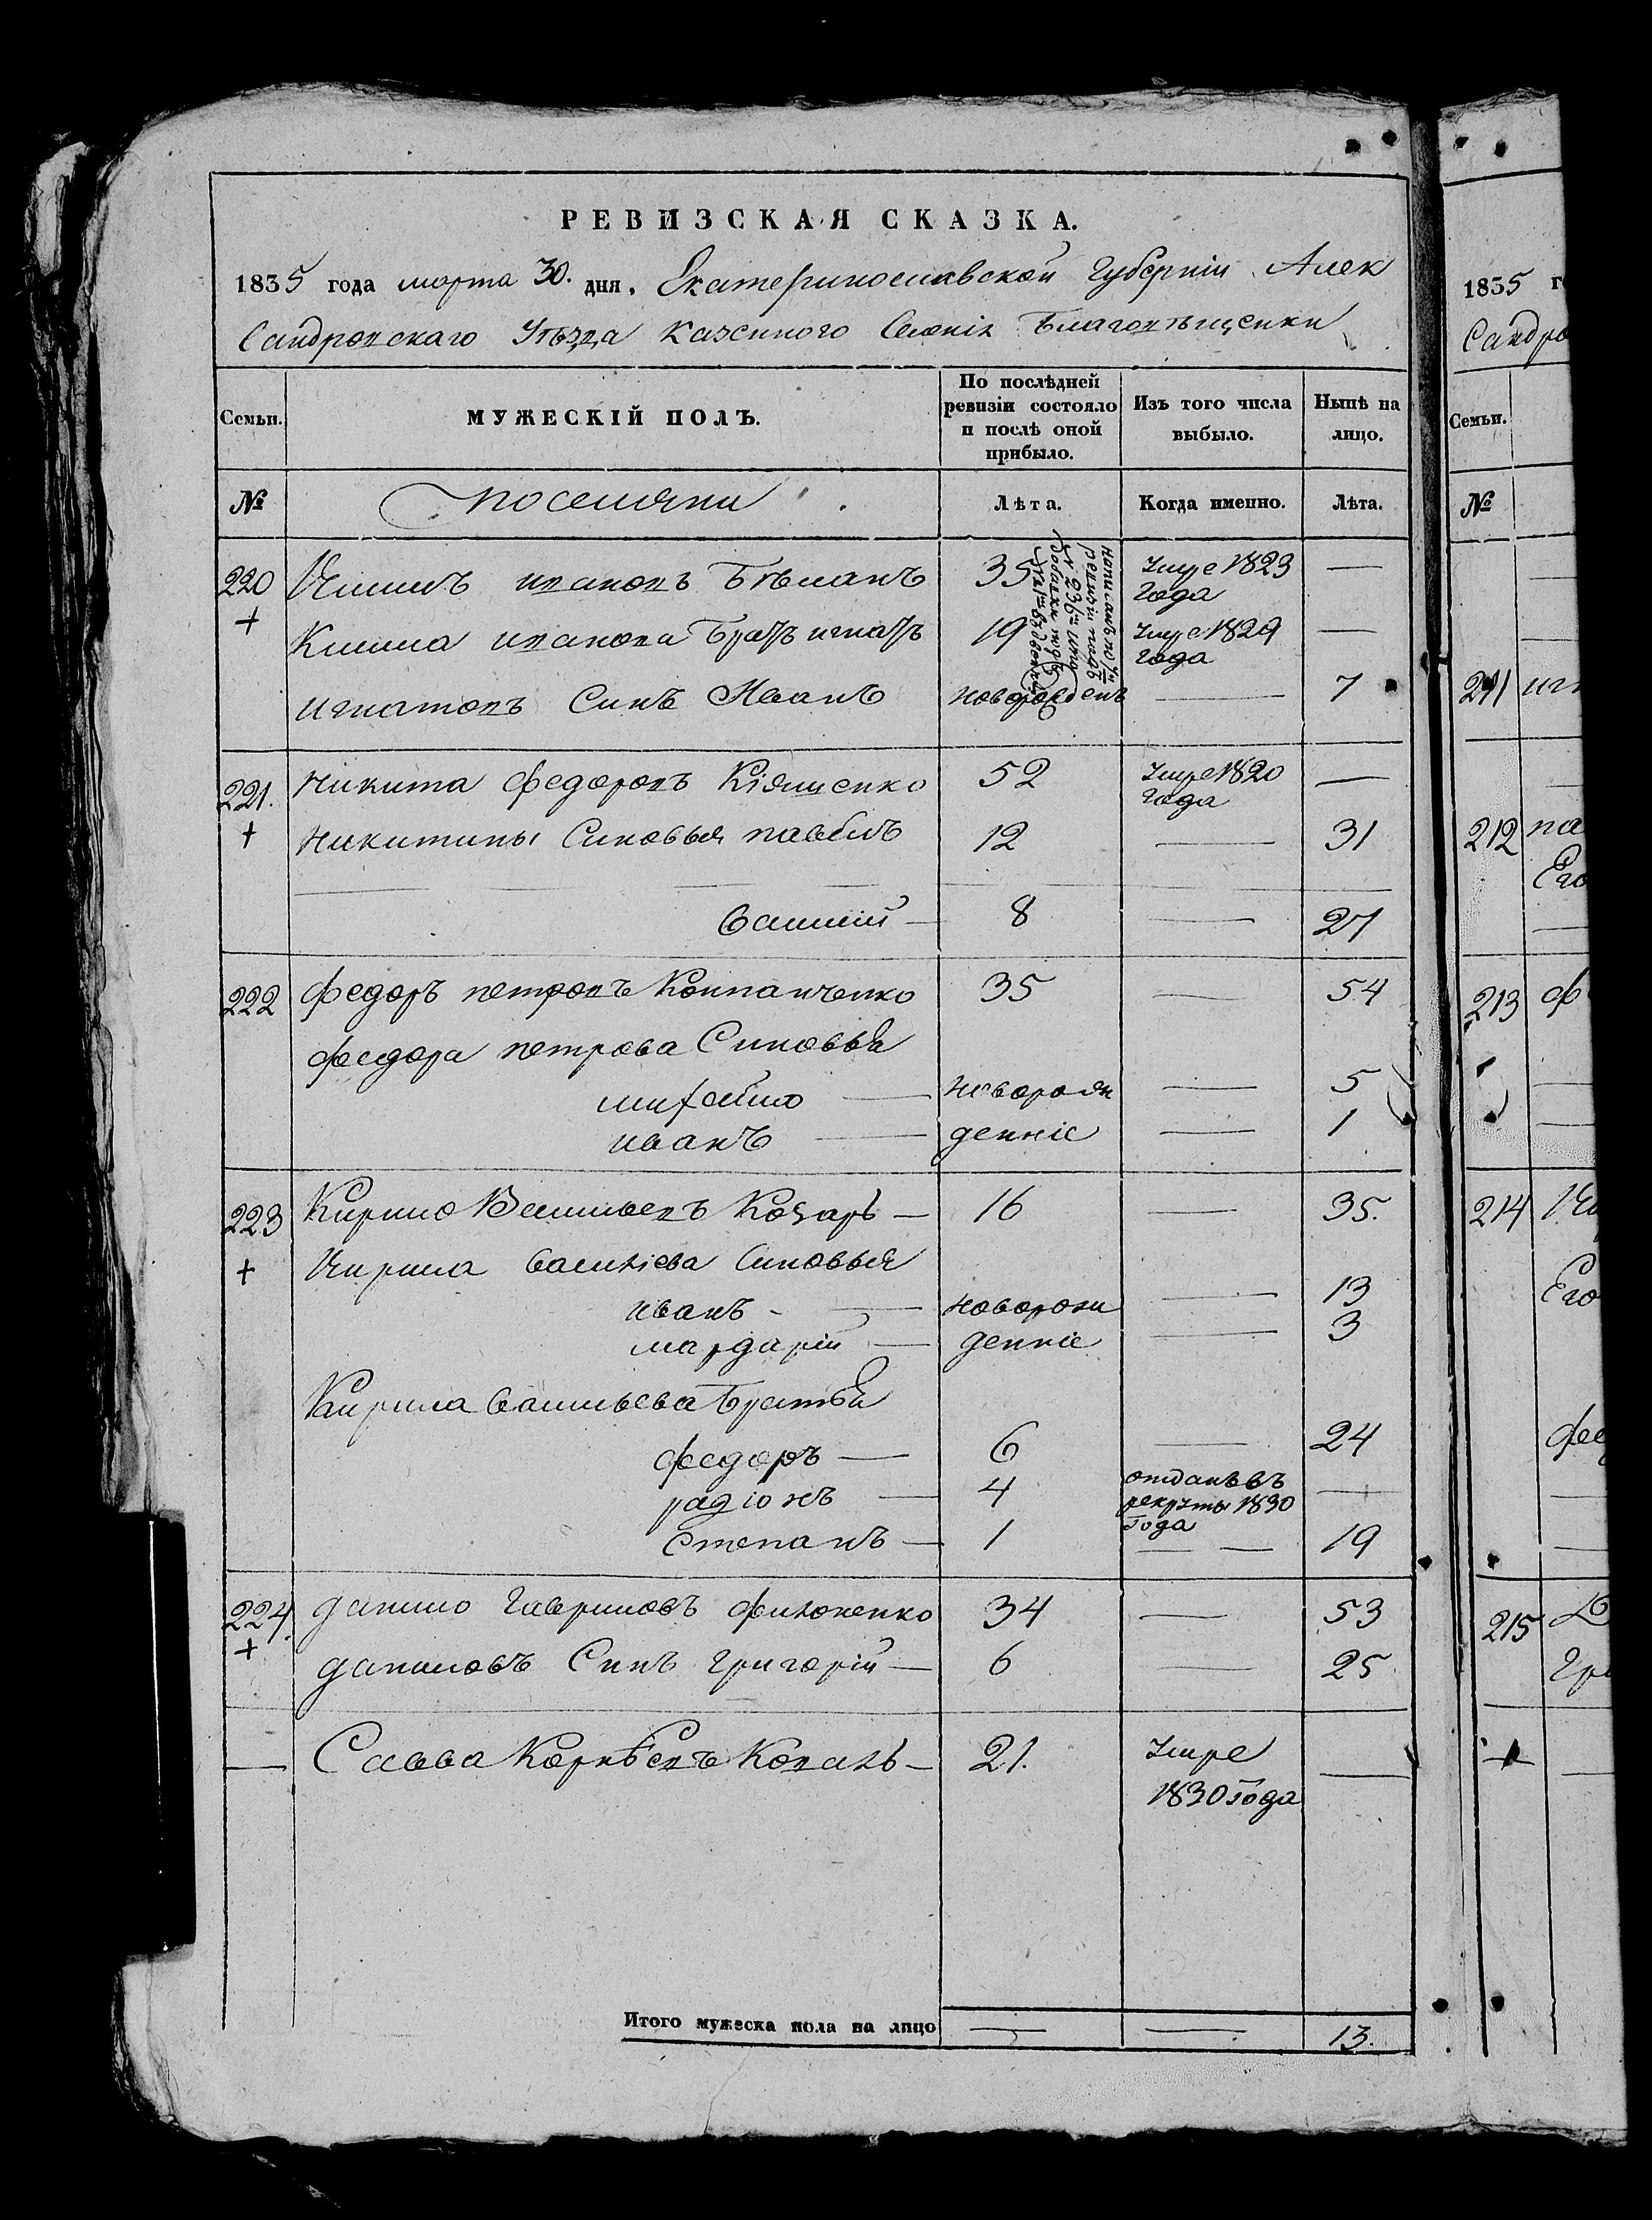 РЕВИЗСКАЯ СКАЗКА.
1835 года марта 30. дня. Екатеринославской Губерніи Алек
сандровскаго Уѣзда казенного Селенія Благовѣщенки
Семьи.
МУЖЕСКІЙ ПОЛЪ.
По послѣдней ревизіи состояло и послѣ оной прибыло.
Изъ того числа выбыло.
Нынѣ на лицо.
№
поселяни
Лѣта.
Когда именно.
Лѣта.
220 Климъ ивановъ Бѣланъ 35 Умре 1823 года —
+ Клима иванова братъ игнатъ 19 Умре 1829 года —
игнатовъ Синъ Иванъ новорожденъ — 7
221. никита федоровъ Кіященко 52 Умре 1820 года —
+ никитины Синовья павелъ 12 — 31
василій — 8 — 27
222 федоръ петровъ Компанченко 35 — 54
федора петрова Синовья
михайло — новорож — 5
иванъ — денніе — 1
223 Кирило Васильевъ Коваръ — 16 — 35.
+ Кирила василіева Синовья
иванъ — новорож — 13
мардарій — денніе — 3
Кирила васильева братья
федоръ — 6 — 24
радіонъ — 4 отданъ въ рекруты 1830 года —
Степанъ — 1 — — 19
224. данило гавриловъ филоненко 34 — 53
+ даниловъ Синъ григорій — 6 — 25
— Савва Корнѣевъ Коваль — 21. Умре 1830 года —
Итого мужеска пола на лицо — — 13.
1835 г
Сандро
Семьи.
№
211 иг
212 па
Его
213 ф
214
Его
фед
215
Гри